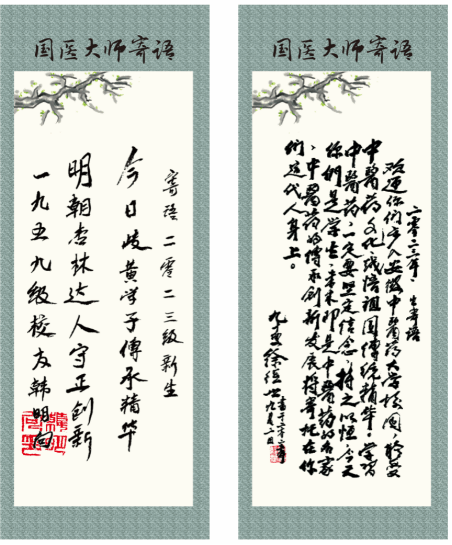 国医大师寄语
寄语二零二三级新生
今日岐黄学子傳承精华
明朝杏林达人守正创新
一九五九级校友韩明向
国医大师寄语
二零二三年，生寄语
欢迎你们步入安徽中医药大学校园，接受
中醫药文化，悟祖国傅统精华。学習
中醫药，一定要坚定信念，持之以恒，今天
你们是学生，未来即是中醫药的名家
，中醫药的傳承创新发展将寄托在你
们这代人身上。
徐经世
九月二日